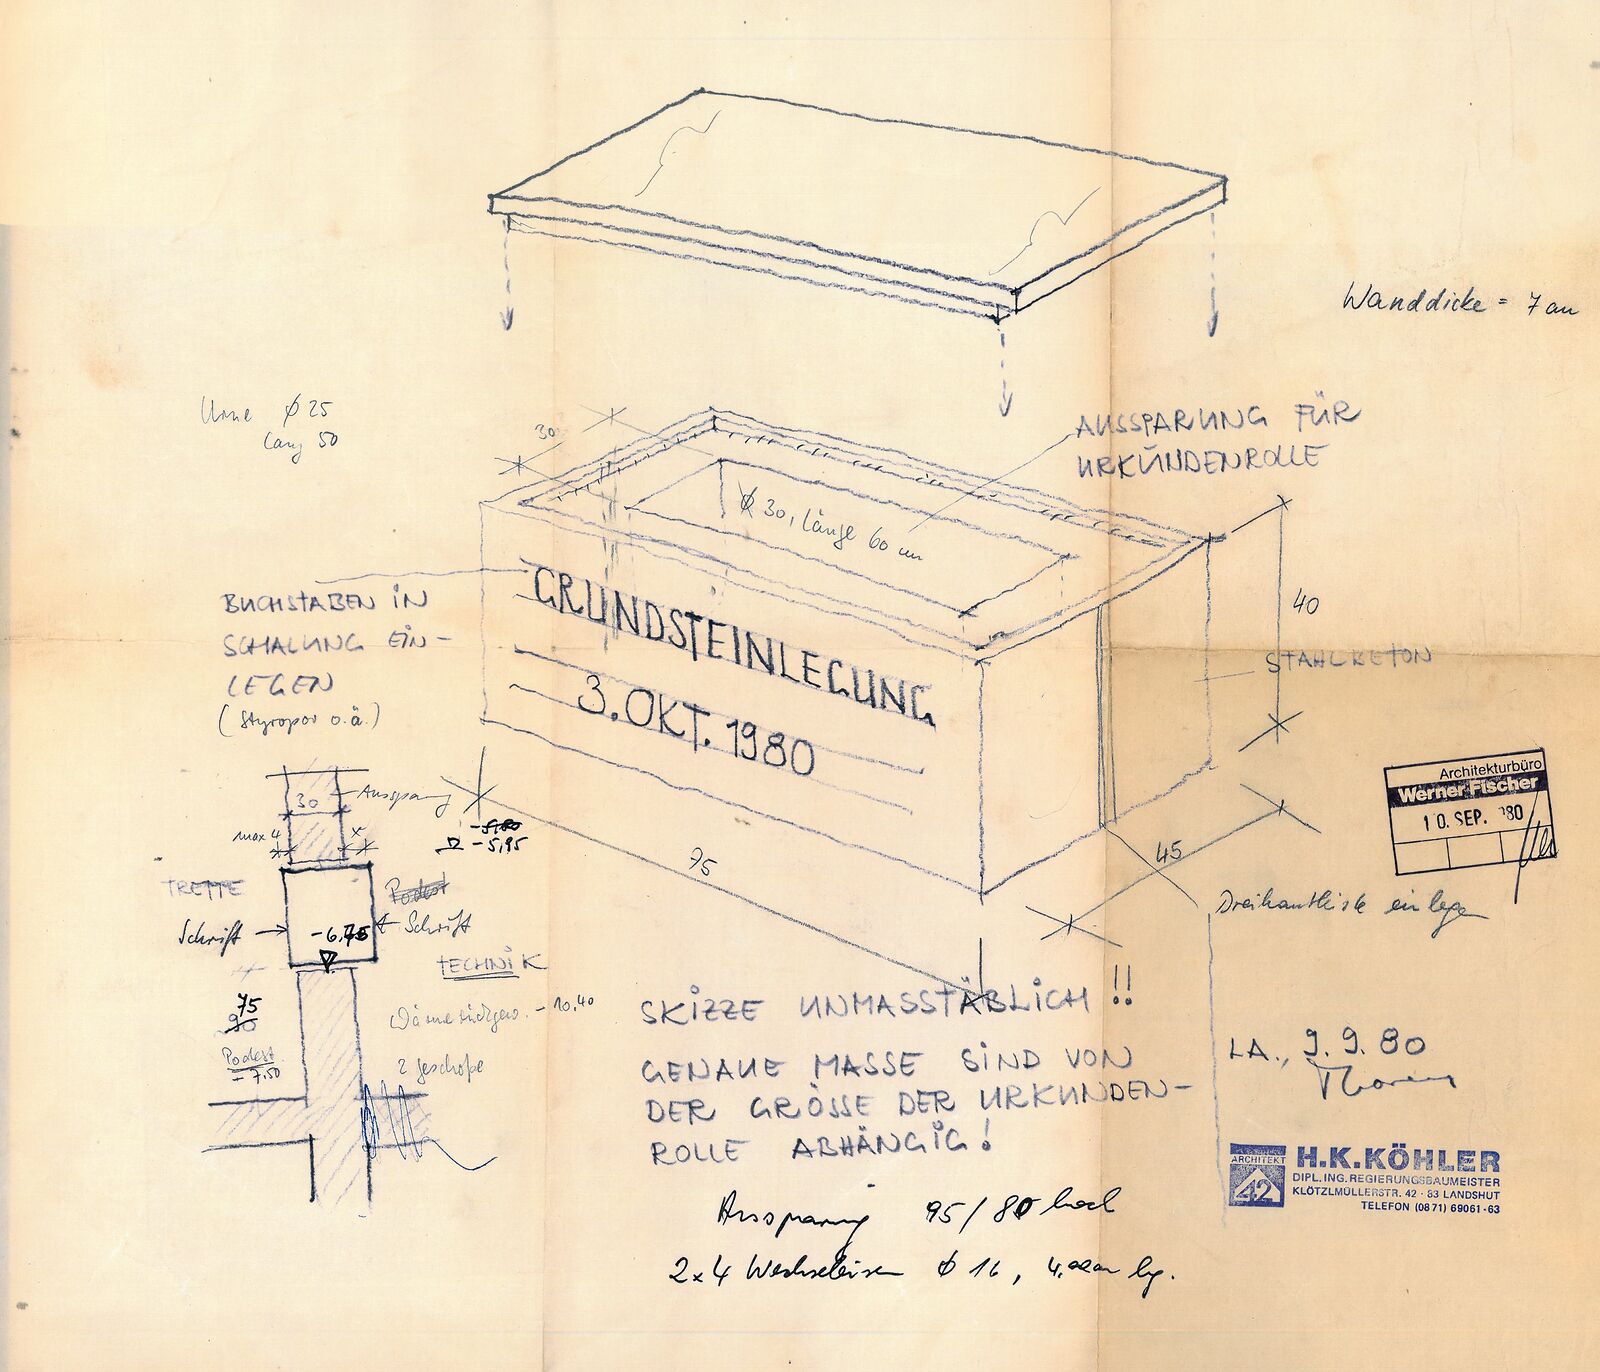 Wanddicke = 7 cm
Urne ϕ 25
lang 50
30
AUSSPARUNG FÜR
URKUNDENROLLE
ϕ 30, länge 60 cm
BUCHSTABEN IN
SCHALUNG EIN-
LEGEN
(Styropor o.ä.)
GRUNDSTEINLEGUNG
3. OKT. 1980
40
STAHLBETON
75
45
Dreikantleiste einlegen
30
Aussparung
max 4
x
-5,80
-5,95
TREPPE
Podest
Schrift
Schrift
-6,75
TECHNIK
75
90
Podest
-7,50
-10,40
2 geschoße
SKIZZE UNMASSTÄBLICH!!
GENAUE MASSE SIND VON
DER GRÖSSE DER URKUNDEN-
ROLLE ABHÄNGIG!
Aussparung 95/80 hoch
2x4 Wechseleisen ϕ 16, lg.
Architekturbüro
Werner Fischer
10. SEP. '80
LA., 9.9.80
ARCHITEKT
42
H.K.KÖHLER
DIPL.ING.REGIERUNGSBAUMEISTER
KLÖTZLMÜLLERSTR. 42 · 83 LANDSHUT
TELEFON (0871) 69061-63